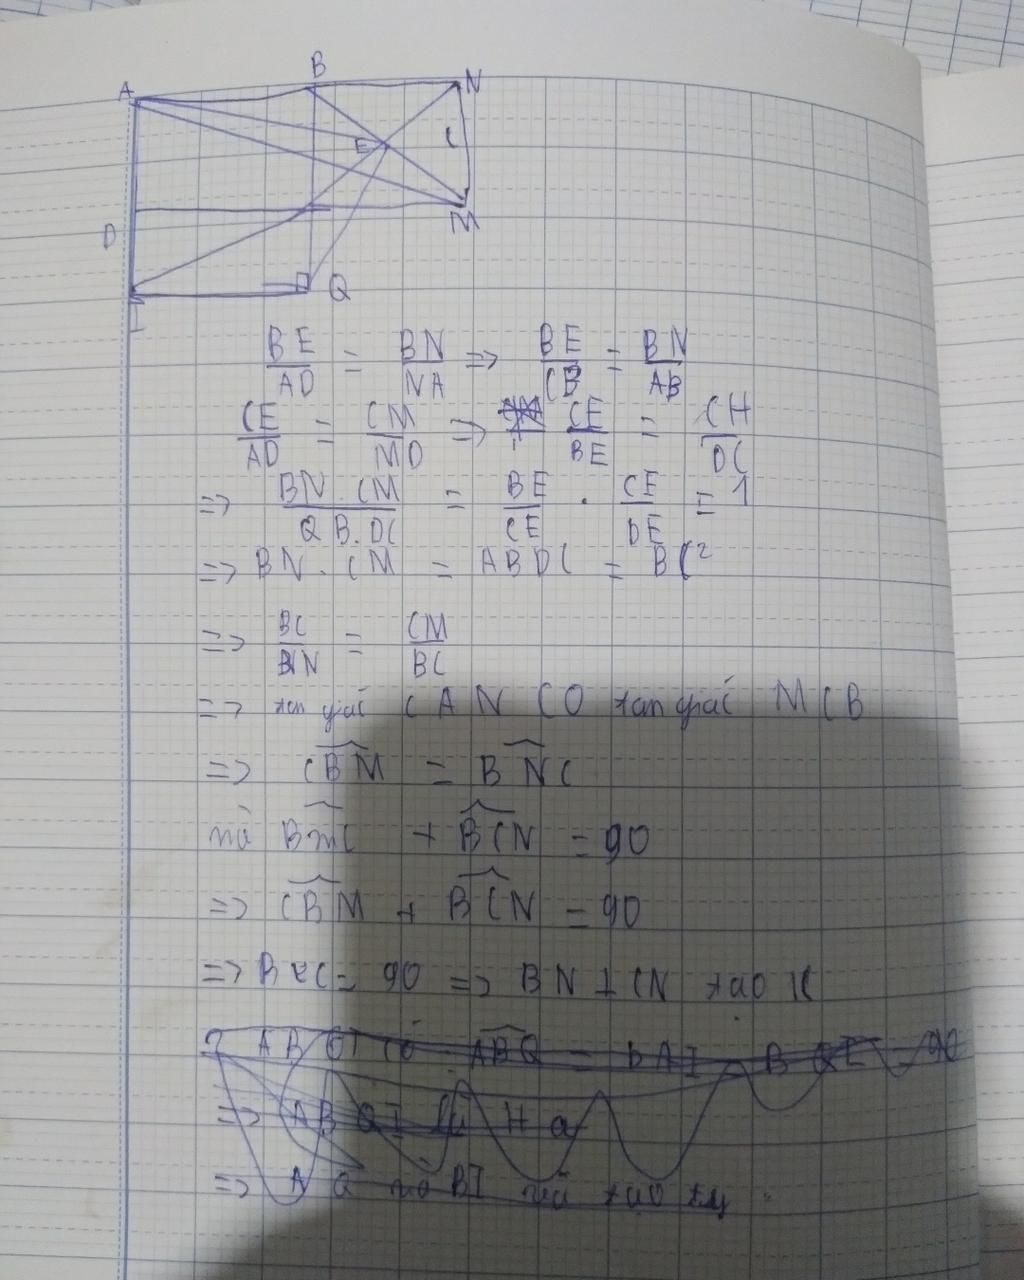 A B N
E C
D M
I Q
BE/AD = BN/NA => BE/CB = BN/AB
CE/AD = CM/MD => CE/BE = CH/DC
=> BN . CM / QB.DC = BE/CE . CE/DE = 1
=> BN . CM = ABDC = BC²
=> BC/BN = CM/BC
=> tam giác CAN CO tam giác MCB
=> CBM = BNC
mà BMC + BCN = 90
=> CBM + BCN = 90
=> BKC = 90 => BN ⊥ CN tao K
ABQI có ABQ = bAI BQI = 90
=> ABQI là H a
=> A Q mà BI mà tao